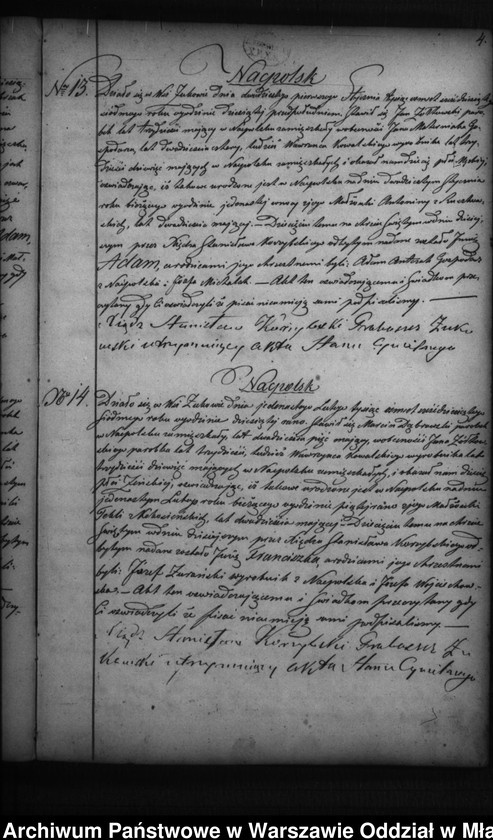 4.
Nacpolsk
No 13. Działo się w Wsi Żukowie dnia dwudziestego pierwszego Stycznia tysiąc ośmset sześćdziesiąt
siódmego roku o godzinie dziesiątej przed południem, Stawił się Jan Ziółkowski paro-
bek lat trzydzieści mający w Nacpolsku zamieszkały w obecności Jana
lat dwadzieścia cztery, tudzież Wawrzeńca Kowalskiego wyrobnika lat
trzydzieści dziewięć mających w Nacpolsku zamieszkałych i okazał nam dziecię płci Męzkiej,
oświadczając, iż takowe urodzone jest w Nacpolsku na dniu dwudziestym Stycznia
roku bieżącego o godzinie jedenastej w nocy z jego Małżonki Antoniny z
lat dwadzieścia mającej. — Dziecięciu temu na chrzcie świętym w dniu dzisiej-
szym przez Księdza Stanisława Korzybskiego odbytym nadane zostało Imię
Adam, a rodzicami jego chrzestnemi byli: Adam Antczak Gospodarz
z Nacpolska i Józefa Michalak. — Akt ten oświadczającemu i Świadkom prze-
czytany gdy Ci oświadczyli że pisać nie umieją sami podpisaliśmy. —
Ksiądz Stanisław Korzybski Proboszcz Żuko-
wski utrzymujący Akta Stanu Cywilnego
Nacpolsk
No 14. Działo się w Wsi Żukowie dnia jedenastego Lutego tysiąc ośmset sześćdziesiątego
siódmego roku o godzinie dziesiątej rano. Stawił się Marcin parobek
w Nacpolsku zamieszkały, lat dwadzieścia pięć mający, w obecności Jana Ziółkow-
skiego parobka lat trzydzieści, tudzież Wawrzeńca Kowalskiego wyrobnika lat
trzydzieści dziewięć mających w Nacpolsku zamieszkałych, i okazał nam dziecię
płci Żeńskiej, oświadczając, iż takowe urodzone jest w Nacpolsku na dniu
jedenastym Lutego roku bieżącego o godzinie piątej rano z jego Małżonki
lat dwadzieścia mającej. — Dziecięciu temu na chrzcie
Świętym w dniu dzisiejszym przez Księdza Stanisława Korzybskiego od-
bytym nadane zostało Imię Franciszka, a rodzicami jego chrzestnemi
byli: Józef Żurański wyrobnik z Nacpolska i Józefa
Akt ten oświadczającemu i Świadkom przeczytany gdy
Ci oświadczyli że pisać nie umieją sami podpisaliśmy. —
Ksiądz Stanisław Korzybski Proboszcz Żu-
kowski utrzymujący Akta Stanu Cywilnego
Archiwum Państwowe w Warszawie Oddział w Mła